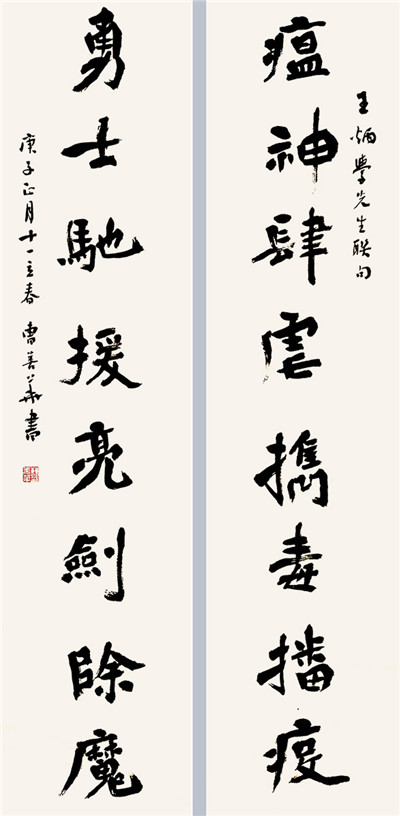 瘟神肆虐攜毒播疫
王炳學先生聯句
勇士馳援亮劍除魔
庚子正月十一立春 曹善華書